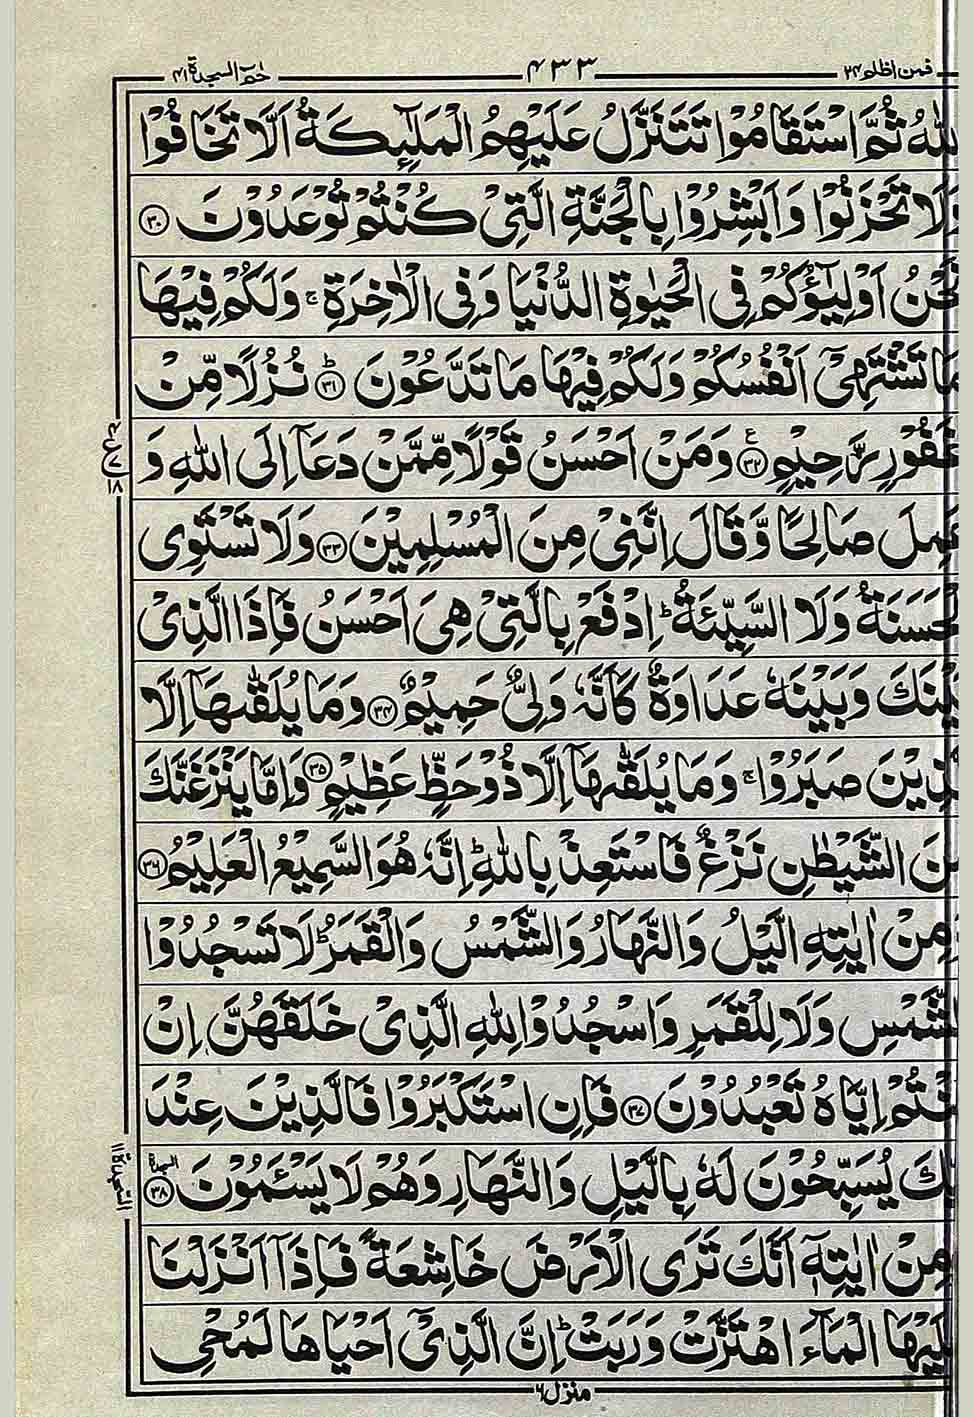 فمن اظلم ۲۴ ۴۳۳ حٰمٓ السجدة ۴۱
اللّٰهُ ثُمَّ اسْتَقَامُوْا تَتَنَزَّلُ عَلَيْهِمُ الْمَلٰٓئِكَةُ اَلَّا تَخَافُوْا
وَلَا تَحْزَنُوْا وَاَبْشِرُوْا بِالْجَنَّةِ الَّتِيْ كُنْتُمْ تُوْعَدُوْنَ ۳۰
نَحْنُ اَوْلِيٰٓؤُكُمْ فِي الْحَيٰوةِ الدُّنْيَا وَفِي الْاٰخِرَةِ ۚ وَلَكُمْ فِيْهَا
مَا تَشْتَهِيْٓ اَنْفُسُكُمْ وَلَكُمْ فِيْهَا مَا تَدَّعُوْنَ ۳۱ؕ نُزُلًا مِّنْ
غَفُوْرٍ رَّحِيْمٍ ۳۲ ع وَمَنْ اَحْسَنُ قَوْلًا مِّمَّنْ دَعَآ اِلَى اللّٰهِ وَ
عَمِلَ صَالِحًا وَّقَالَ اِنَّنِيْ مِنَ الْمُسْلِمِيْنَ ۳۳ وَلَا تَسْتَوِي
الْحَسَنَةُ وَلَا السَّيِّئَةُ ؕ اِدْفَعْ بِالَّتِيْ هِيَ اَحْسَنُ فَاِذَا الَّذِيْ
بَيْنَكَ وَبَيْنَهٗ عَدَاوَةٌ كَاَنَّهٗ وَلِيٌّ حَمِيْمٌ ۳۴ وَمَا يُلَقّٰىهَآ اِلَّا
الَّذِيْنَ صَبَرُوْا ۚ وَمَا يُلَقّٰىهَآ اِلَّا ذُوْ حَظٍّ عَظِيْمٍ ۳۵ وَاِمَّا يَنْزَغَنَّكَ
مِنَ الشَّيْطٰنِ نَزْغٌ فَاسْتَعِذْ بِاللّٰهِ ؕ اِنَّهٗ هُوَ السَّمِيْعُ الْعَلِيْمُ ۳۶
وَمِنْ اٰيٰتِهِ الَّيْلُ وَالنَّهَارُ وَالشَّمْسُ وَالْقَمَرُ ؕ لَا تَسْجُدُوْا
لِلشَّمْسِ وَلَا لِلْقَمَرِ وَاسْجُدُوْا لِلّٰهِ الَّذِيْ خَلَقَهُنَّ اِنْ
كُنْتُمْ اِيَّاهُ تَعْبُدُوْنَ ۳۷ فَاِنِ اسْتَكْبَرُوْا فَالَّذِيْنَ عِنْدَ
رَبِّكَ يُسَبِّحُوْنَ لَهٗ بِالَّيْلِ وَالنَّهَارِ وَهُمْ لَا يَسْئَمُوْنَ ۳۸ السجدة
وَمِنْ اٰيٰتِهٖٓ اَنَّكَ تَرَى الْاَرْضَ خَاشِعَةً فَاِذَآ اَنْزَلْنَا
عَلَيْهَا الْمَآءَ اهْتَزَّتْ وَرَبَتْ ؕ اِنَّ الَّذِيْٓ اَحْيَاهَا لَمُحْيِ
منزل ۶
ع
۷
۱۸
السجدة ۱۱